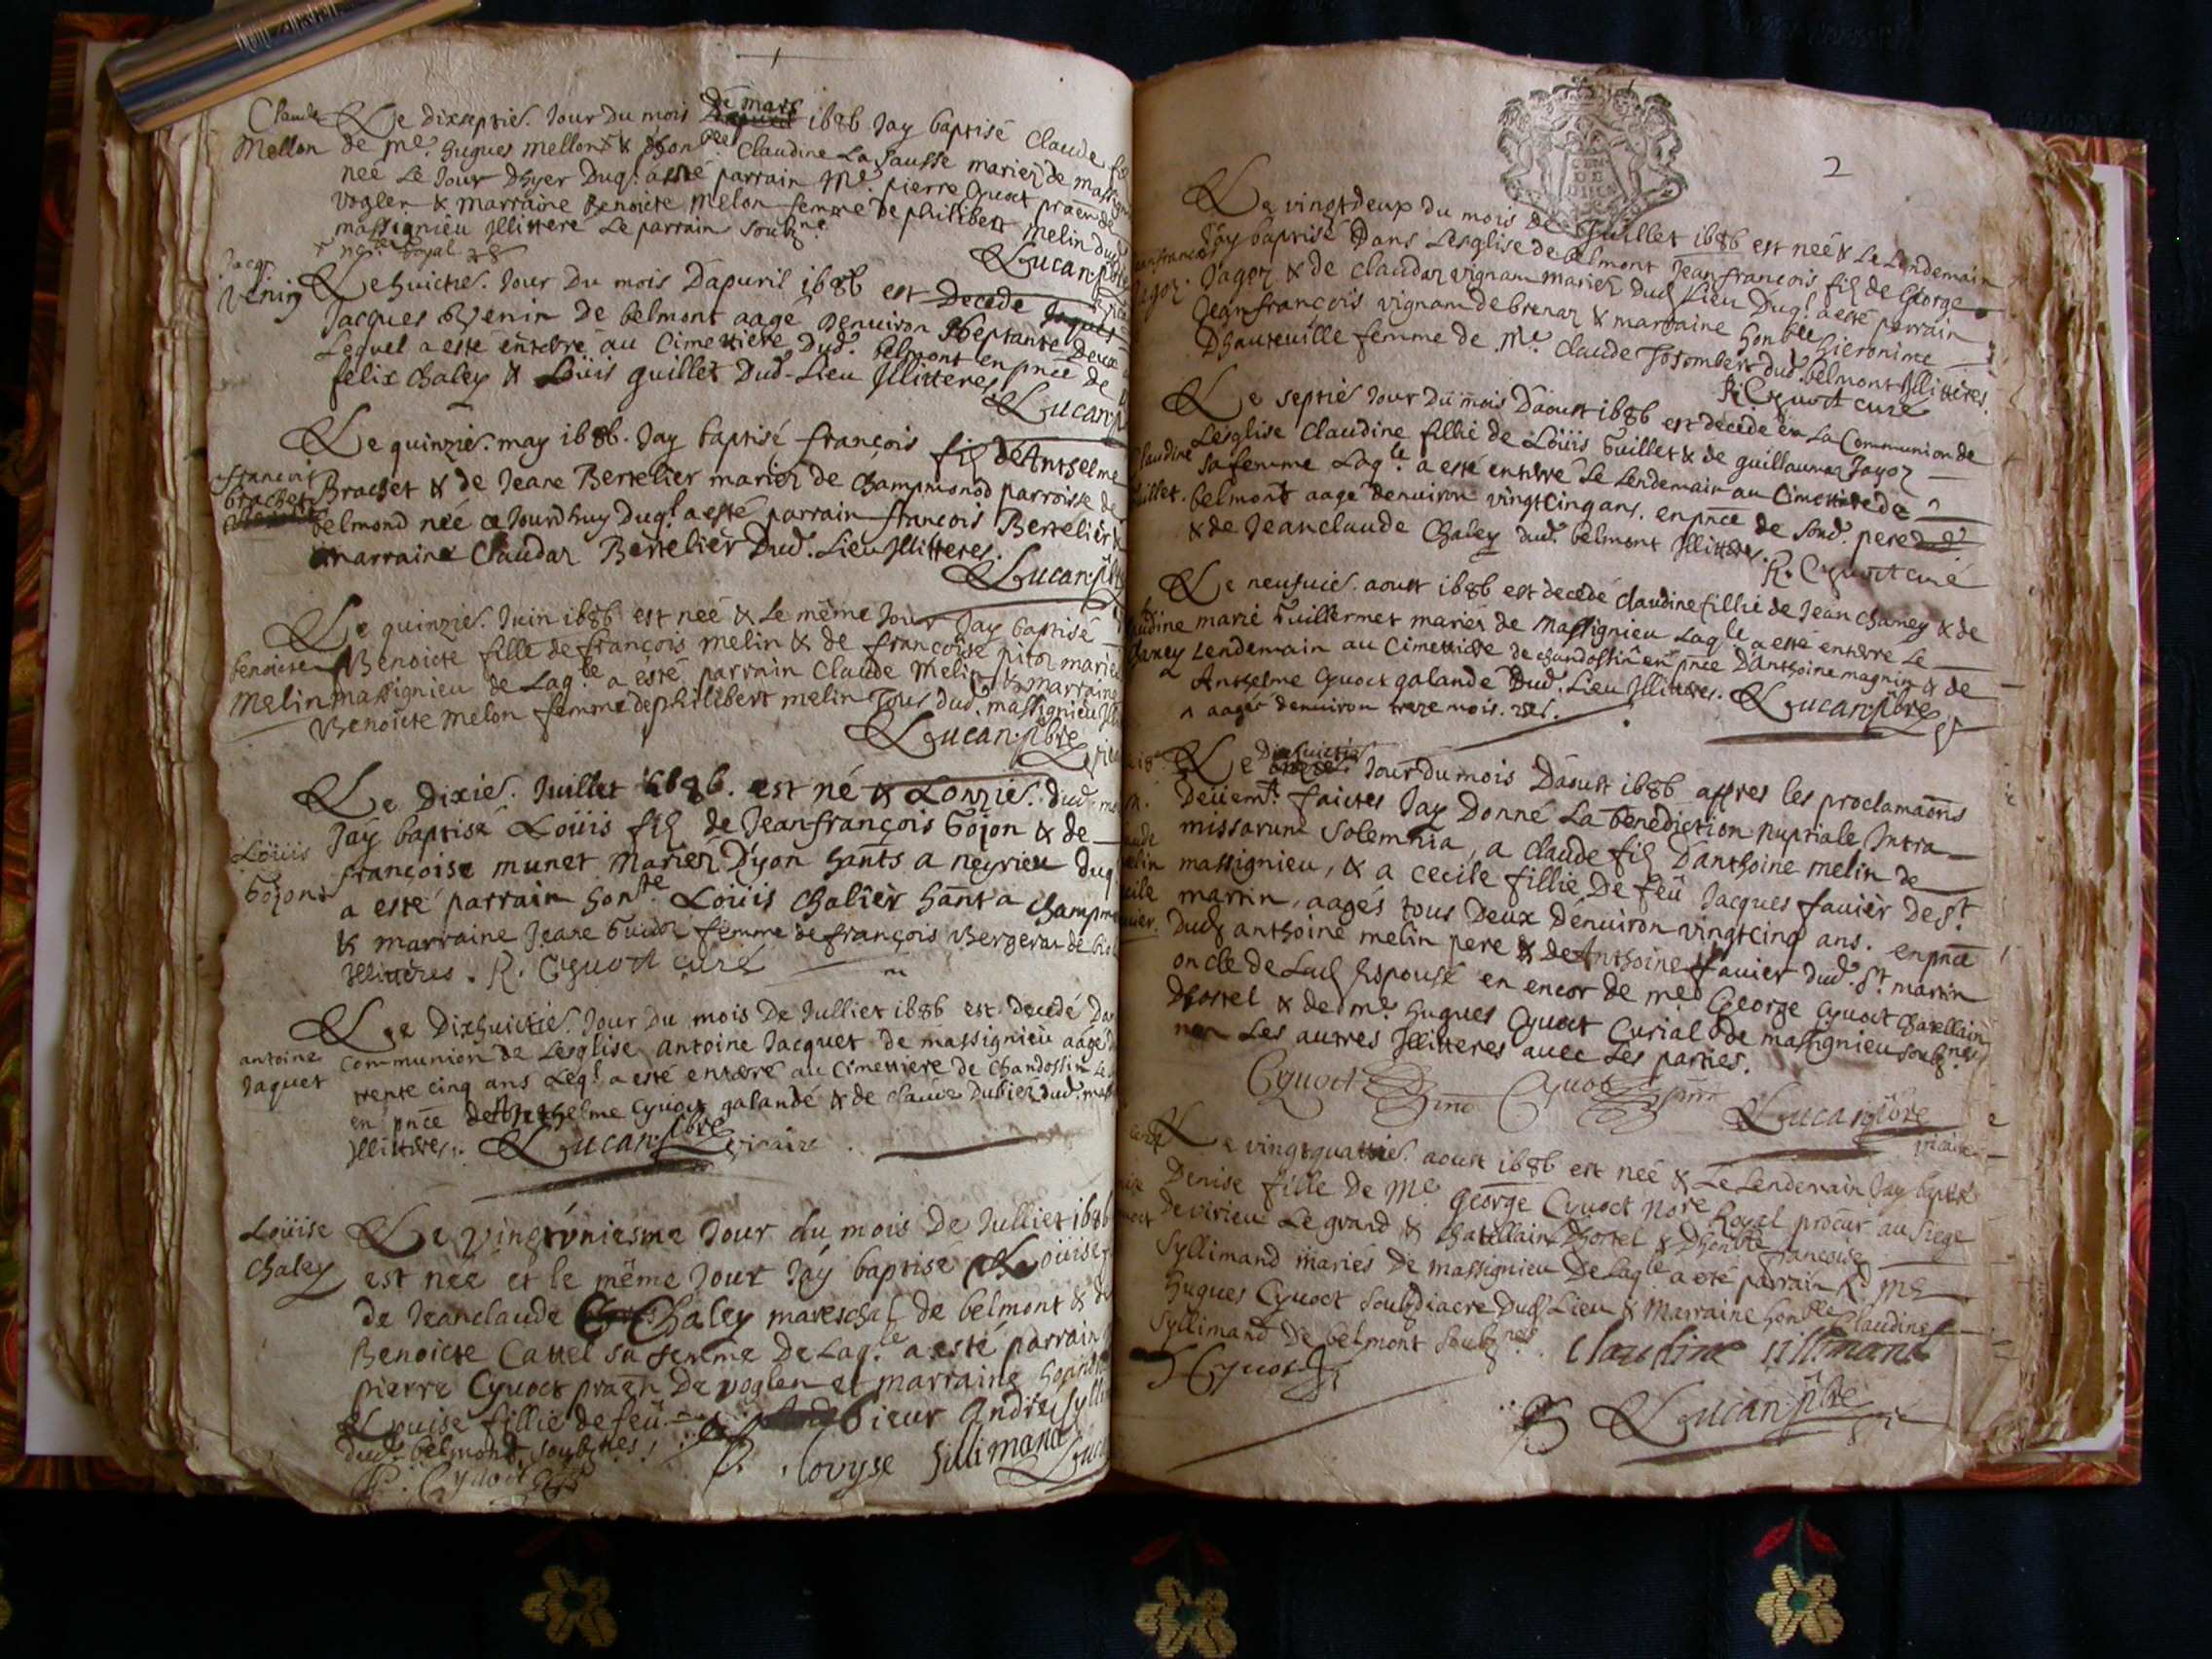 Claude Le dixseptie. Jour Du mois De mars 1686 Jay baptisé Claude
Mellon de Me. hugues mellon & Claudine La sausse mariez de
neé Le Jour Dhyer Duql. a esté parrain Me. pierre Cyuoct
voglen & marraine Benoicte melon femme de philibert melin dud
massignieu Jllittere Le parrain soubzne
royal
Lucan
Jacq. Le huictie. Jour Du mois Dapuril 1686 est Decede
Venin Jacques Venin de belmont aagé Denuiron septante Deux
Lequel a esté enterré au Cimettiere Dud. belmont en pnce de
felix Chaley & Loüis guillet Dud. Lieu Jllitteres
Lucan
Le quinzie. may 1686. Jay baptisé françois fil de Anthelme
françois
brachet Brachet & de Jeane Bertelier mariez de Champmonod parroisse de
belmond neé ce Jourdhuy Duql. a esté parrain françois Bertelier &
marraine Claudaz Bertelier Dud. Lieu Jllitteres.
Lucan
Le quinzie. Juin 1686 est neé & Le même Jour Jay baptisé
benoicte Benoicte fille de françois melin & de françoise pitoz mariez
Melin massignieu de Laqle a esté parrain Claude melin & marraine
Benoicte melon femme de philibert melin Tous dud. massignieu
Lucan pbre
Le Dixie. Juillet 1686. est né & Lonzie. dud
Jay baptisé Loüis fil de Jeanfrançois Gojon & de
Loüis françoise munet mariez Dyon hants a neyrieu duq
Gojon a esté parrain honste Loüis Chalier hant a Champm
& marraine Jeane Guidoz femme de françois Bergeran de
Jllitteres. R. Cyuoct curé
Le Dixhuictie. Jour Du mois De Julliet 1686 est Decedé Da
antoine Communion de Lesglise antoine Jacquet de massignieu aagé
Jaquet trente cinq ans Leql. a esté enterré au Cimettiere de Chandossin
en pnce de Anthelme Cyuoct galande & de claude Dubiez dud.
Jllitteres. Lucan pbre vicaire
Loüise Le vingtvniesme Jour du mois De Julliet 1686
Chaley est neé et le même Jour Jay baptisé Loüise
de Jeanclaude Chaley mareschal de belmont &
Benoicte Cattel sa femme De Laqle a esté parrain
pierre Cyuoct De voglen et marraine
Louise fillie de feü sieur andré
dud. belmond, soubznes.
P. Cyuoct lovyse Sillimand
2
Le vingtdeux du mois de Juillet 1686 est neé & Le Lendemain
Jay baptisé Dans Lesglise de belmont Jeanfrançois fil de George
Jagoz & de claudaz vignam mariez dud Lieu Duql. a esté parrain
Jeanfrançois vignam de brenaz & marraine honble hieronime
Dhauteuille femme de Me Claude Josombert dud. belmont Jllitteres.
R. Cyuoct curé
Le septie Jour Du mois Daoust 1686 est decede en La Communion de
Lesglise Claudine fillie de Loüis Guillet & de guillaumaz Jagoz
sa femme Laqle a esté enterré Le Lendemain au Cimettiere de
belmont aagé denuiron vingtcinq ans. en pnce de sond. pere
& de Jeanclaude Chaley dud. belmont Jllitteres.
R. Cyuoct curé
Le neufuie. aoust 1686 est decedé Claudine fillie de Jean Chaney & de
marie Guillermet mariés de Massignieu Laqle a esté enterré Le
Lendemain au Cimettiere de chandossin en pnce Danthoine magnin & de
Anthelme Cyuoct galande Dud. Lieu Jllitteres. Lucan pbre
aagée denuiron treze mois.
Le Dixhuictie Jour du mois Daoust 1686 apres les proclamaons
Deüemt. faictes Jay Donné La benediction nuptiale Intra
missarum solemnia, a claude fil Danthoine melin de
massignieu, & a cecile fillie De feü Jacques fauier De St.
martin, aagés tous Deux denuiron vingtcinq ans. en pnce
Dud anthoine melin pere & de Anthoine fauier dud. St. martin
oncle de Lad Espouse en encor de me George Cyuoct Chatellain
Dhostel & de me. hugues Cyuoct Curial de massignieu soubznes
non Les autres Jllitteres auec Les parties.
Cyuoct Cyuoct
Lucan pbre
vicaire
Le vingtquatrie. aoust 1686 est neé & Le Lendemain Jay baptisé
Denise fille de Me George Cyuoct nore Royal procur au siege
De virieu Le grand & Chatellain Dhostel & Dhonble françoise
Syllimand mariés de massignieu De Laqle a esté parrain Rd me
hugues Cyuoct soubzdiacre Dud Lieu & marraine honble Claudine
Syllimand De belmont soubznes. Claudine sillimand
H Cyuoct
Lucan pbre